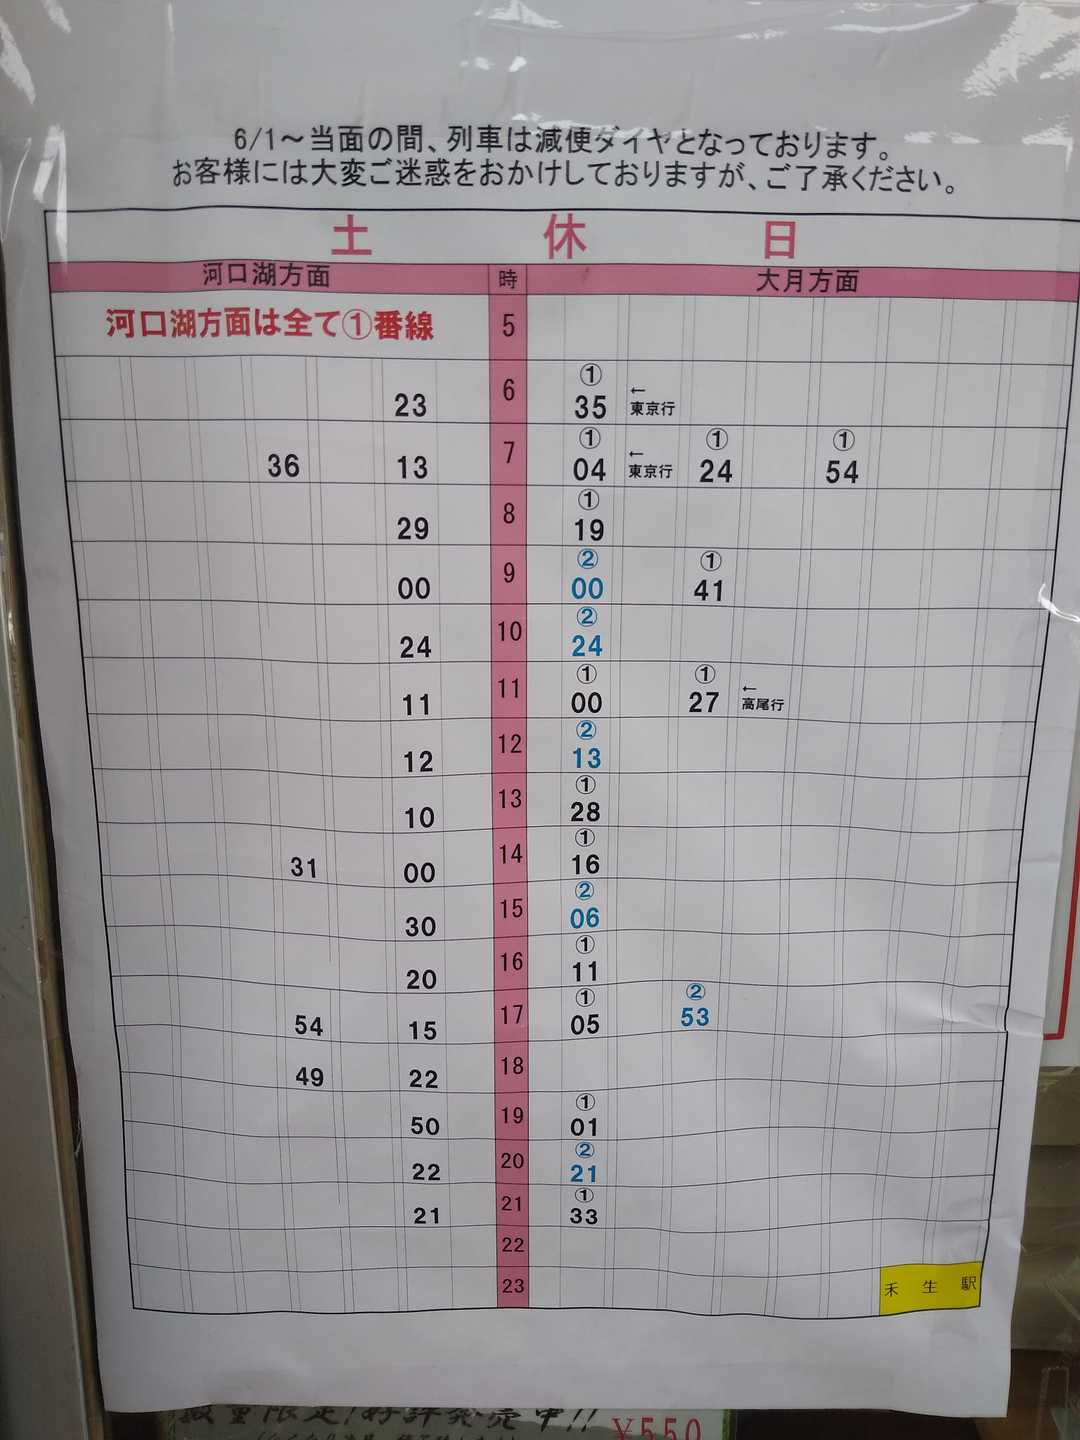 6/1～当面の間、列車は減便ダイヤとなっております。
お客様には大変ご迷惑をおかけしておりますが、ご了承ください。
土 休 日
河口湖方面 時 大月方面
河口湖方面は全て①番線 5
① 
23 6 35 ←東京行
① ① ①
36 13 7 04 ←東京行 24 54
①
29 8 19
② ①
00 9 00 41
②
24 10 24
① ①
11 11 00 27 ←高尾行
②
12 12 13
①
10 13 28
①
31 00 14 16
②
30 15 06
①
20 16 11
① ②
54 15 17 05 53
49 22 18
①
50 19 01
②
22 20 21
①
21 21 33
22
23
禾生駅
数量限定!好評発売中!!
¥550